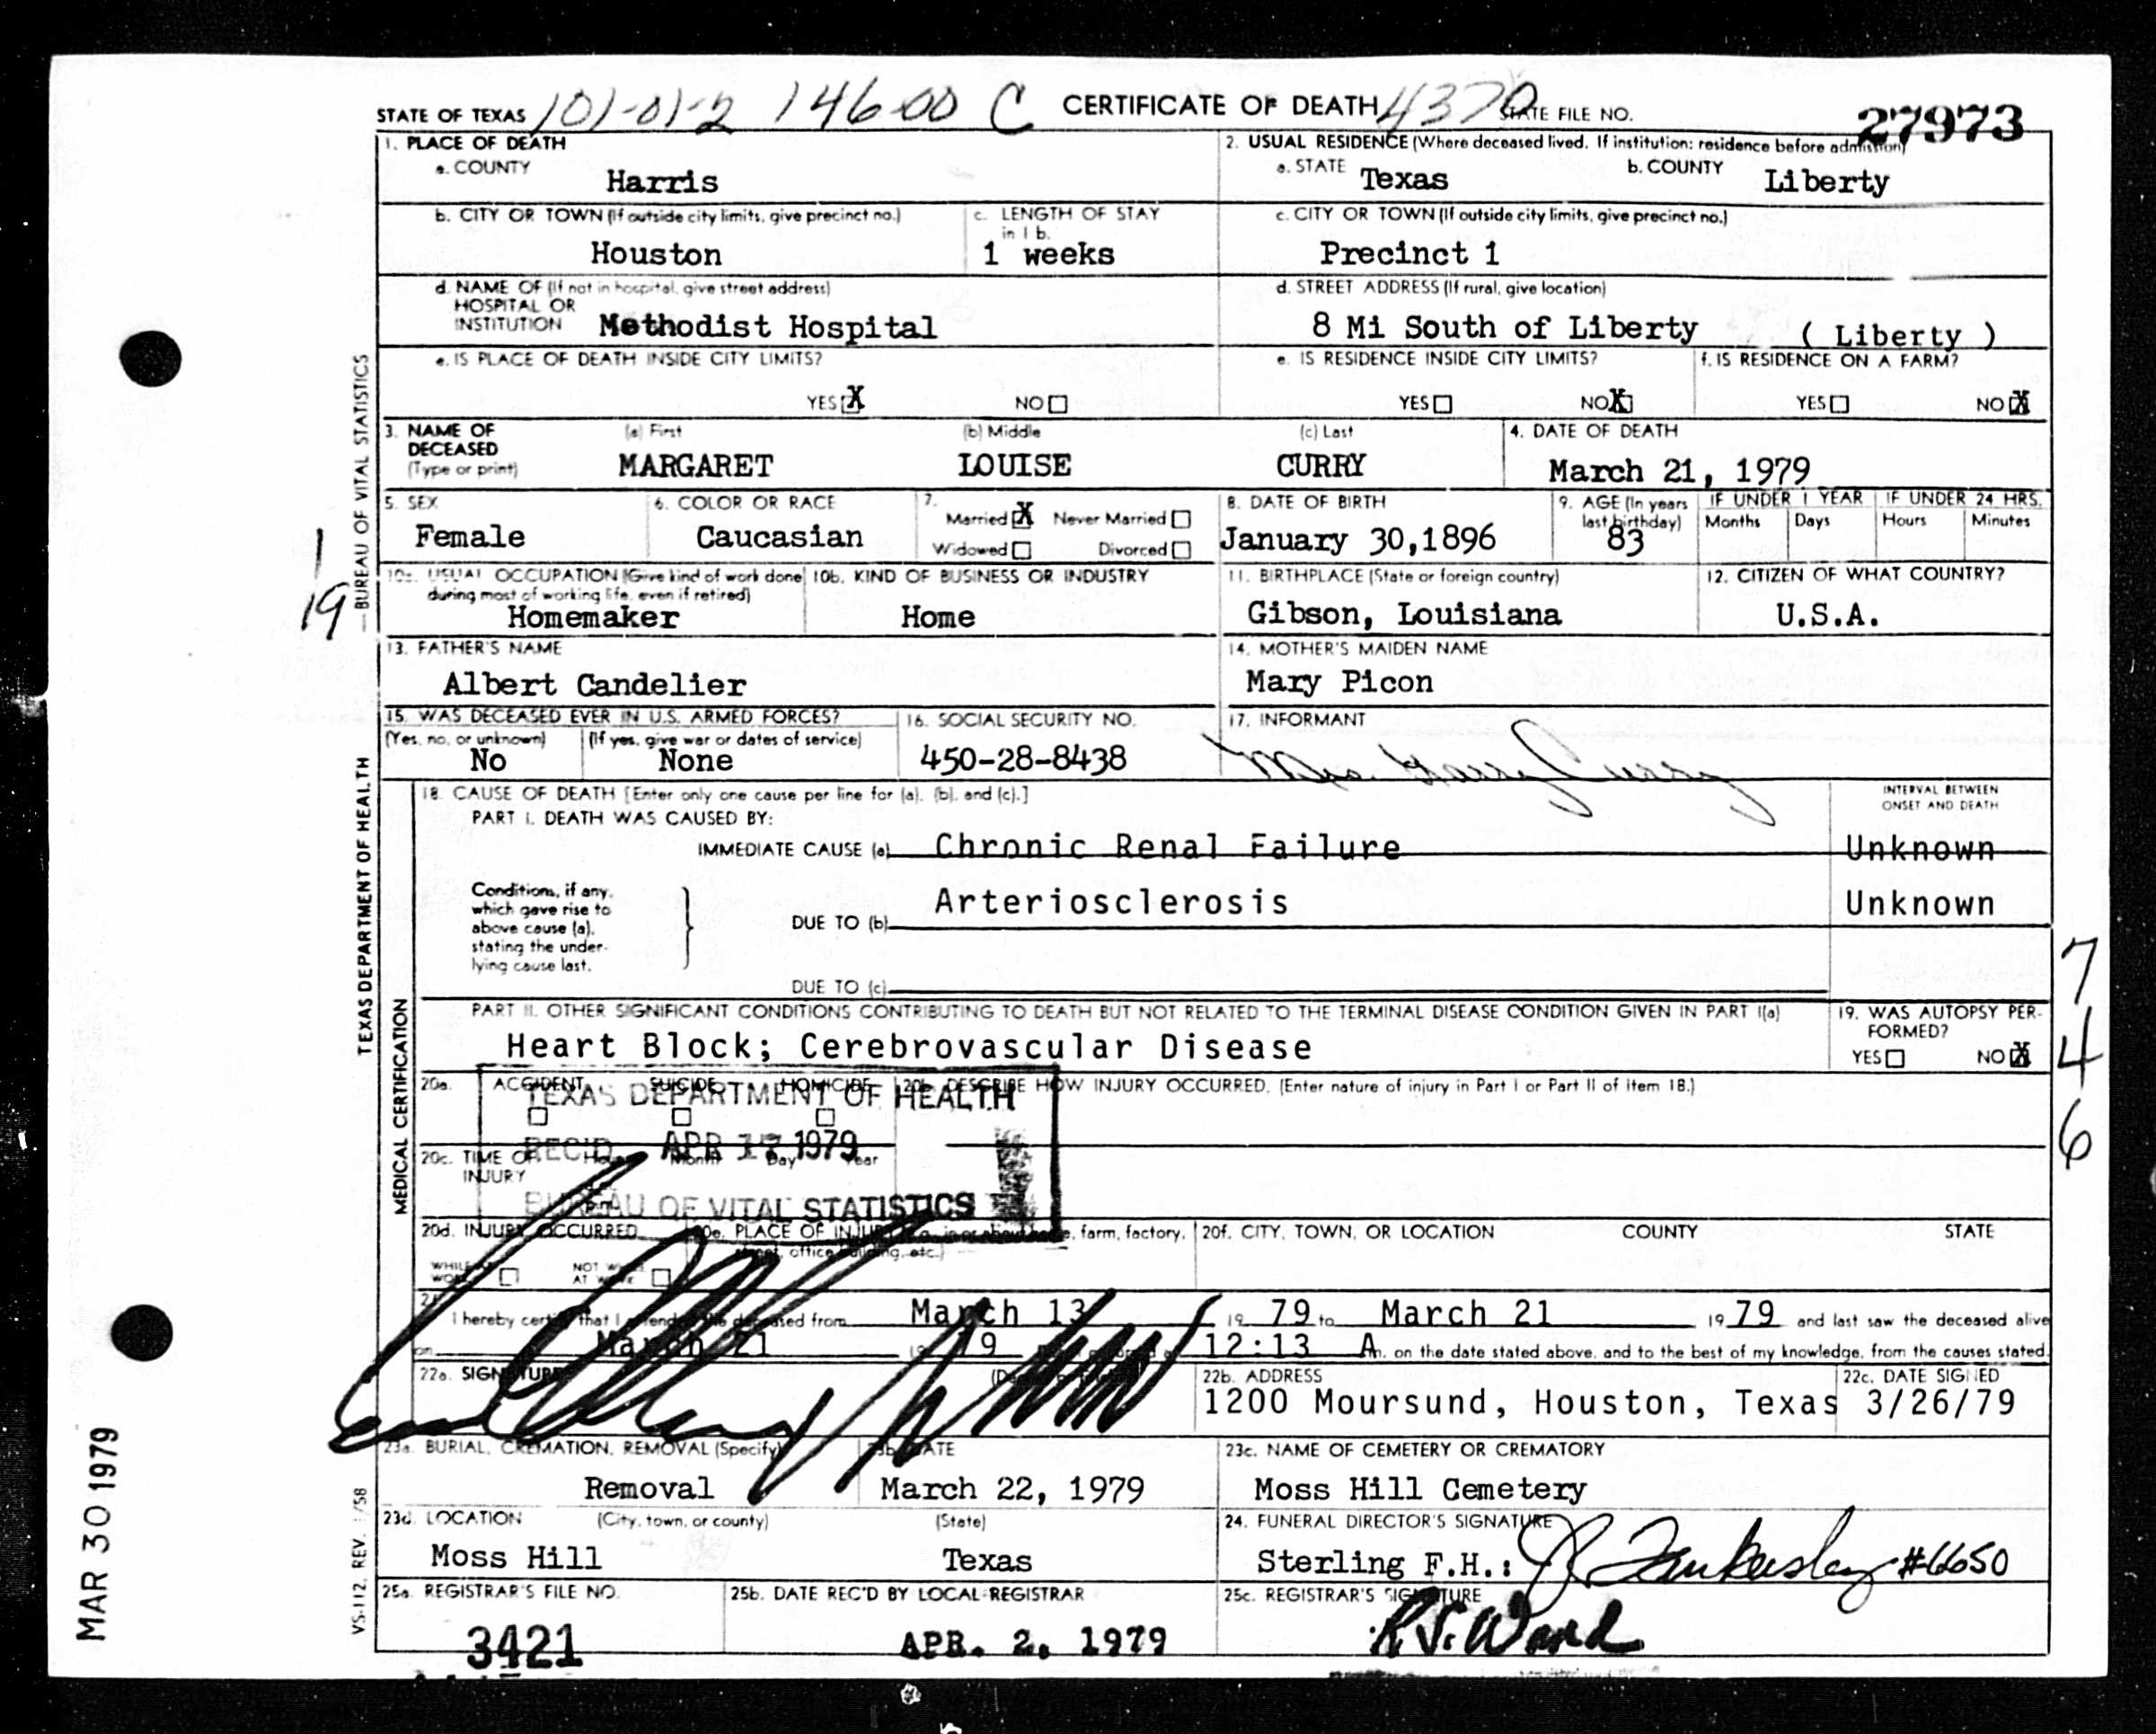 STATE OF TEXAS 101-01-2 146-00 C CERTIFICATE OF DEATH 4370 STATE FILE NO. 27973
1. PLACE OF DEATH
a. COUNTY Harris
2. USUAL RESIDENCE (Where deceased lived. If institution: residence before admission)
a. STATE Texas b. COUNTY Liberty
b. CITY OR TOWN (If outside city limits, give precinct no.) Houston
c. LENGTH OF STAY in 1 b. 1 weeks
c. CITY OR TOWN (If outside city limits, give precinct no.) Precinct 1
d. NAME OF (If not in hospital, give street address)
HOSPITAL OR
INSTITUTION Methodist Hospital
d. STREET ADDRESS (If rural, give location)
8 Mi South of Liberty ( Liberty )
e. IS PLACE OF DEATH INSIDE CITY LIMITS?
YES X NO
e. IS RESIDENCE INSIDE CITY LIMITS?
YES NO X
f. IS RESIDENCE ON A FARM?
YES NO X
3. NAME OF DECEASED (Type or print)
(a) First MARGARET
(b) Middle LOUISE
(c) Last CURRY
4. DATE OF DEATH
March 21, 1979
5. SEX Female
6. COLOR OR RACE Caucasian
7. Married X Never Married
Widowed Divorced
8. DATE OF BIRTH January 30,1896
9. AGE (In years last birthday) 83
IF UNDER 1 YEAR Months Days
IF UNDER 24 HRS. Hours Minutes
10a. USUAL OCCUPATION (Give kind of work done during most of working life, even if retired)
Homemaker
10b. KIND OF BUSINESS OR INDUSTRY
Home
11. BIRTHPLACE (State or foreign country)
Gibson, Louisiana
12. CITIZEN OF WHAT COUNTRY?
U.S.A.
13. FATHER'S NAME
Albert Candelier
14. MOTHER'S MAIDEN NAME
Mary Picon
15. WAS DECEASED EVER IN U.S. ARMED FORCES?
(Yes, no, or unknown) No
(If yes, give war or dates of service) None
16. SOCIAL SECURITY NO.
450-28-8438
17. INFORMANT
Mrs. Harry Curry
18. CAUSE OF DEATH [Enter only one cause per line for (a), (b), and (c).]
INTERVAL BETWEEN ONSET AND DEATH
PART I. DEATH WAS CAUSED BY:
IMMEDIATE CAUSE (a) Chronic Renal Failure Unknown
Conditions, if any, which gave rise to above cause (a), stating the underlying cause last.
DUE TO (b) Arteriosclerosis Unknown
DUE TO (c)
PART II. OTHER SIGNIFICANT CONDITIONS CONTRIBUTING TO DEATH BUT NOT RELATED TO THE TERMINAL DISEASE CONDITION GIVEN IN PART I(a)
Heart Block; Cerebrovascular Disease
19. WAS AUTOPSY PERFORMED?
YES NO X
20a. ACCIDENT SUICIDE HOMICIDE
20b. DESCRIBE HOW INJURY OCCURRED. (Enter nature of injury in Part I or Part II of item 18.)
TEXAS DEPARTMENT OF HEALTH
REC'D APR 17 1979
BUREAU OF VITAL STATISTICS
20c. TIME OF INJURY Hour Month Day Year
20d. INJURY OCCURRED
WHILE AT WORK NOT WHILE AT WORK
20e. PLACE OF INJURY (e.g., in or about home, farm, factory, street, office building, etc.)
20f. CITY, TOWN, OR LOCATION COUNTY STATE
21. I hereby certify that I attended the deceased from March 13 19 79 to March 21 19 79 and last saw the deceased alive
on March 21 19 79 12:13 A m. on the date stated above, and to the best of my knowledge, from the causes stated.
22a. SIGNATURE
22b. ADDRESS
1200 Moursund, Houston, Texas
22c. DATE SIGNED
3/26/79
23a. BURIAL, CREMATION, REMOVAL (Specify)
Removal
23b. DATE
March 22, 1979
23c. NAME OF CEMETERY OR CREMATORY
Moss Hill Cemetery
23d. LOCATION (City, town, or county) (State)
Moss Hill Texas
24. FUNERAL DIRECTOR'S SIGNATURE
Sterling F.H.: #6650
25a. REGISTRAR'S FILE NO.
3421
25b. DATE REC'D BY LOCAL REGISTRAR
APR. 2, 1979
25c. REGISTRAR'S SIGNATURE
R.S. Ward
TEXAS DEPARTMENT OF HEALTH — BUREAU OF VITAL STATISTICS
MEDICAL CERTIFICATION
VS-112, REV. 1/58
MAR 30 1979
1
19
7
4
6